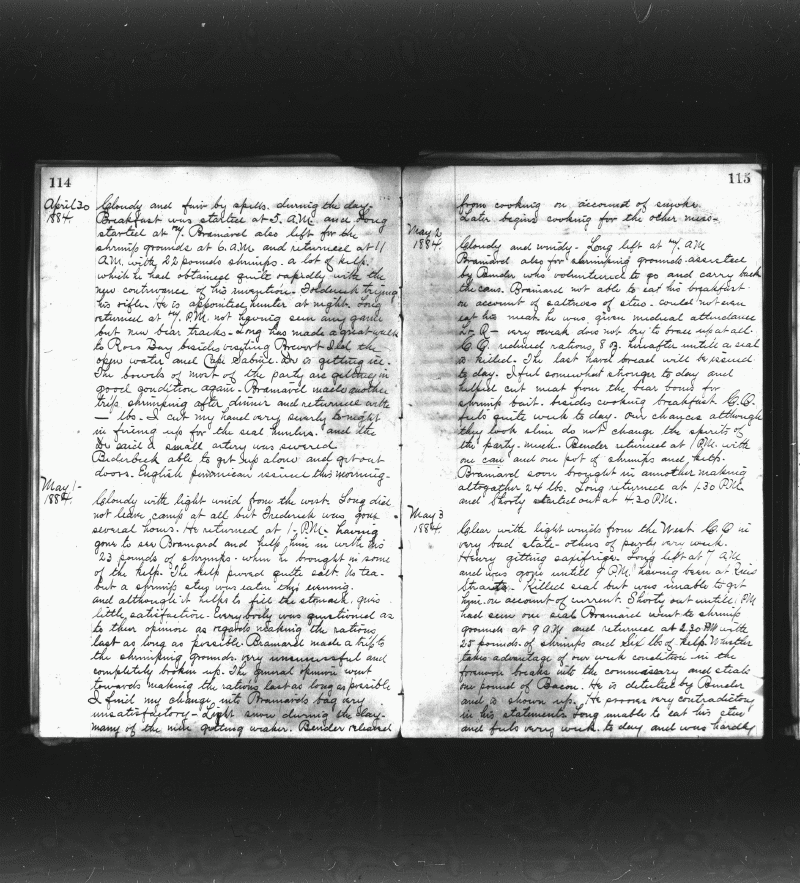 114
April 30
1884.
Cloudy and fair by spells. during the day.
Breakfast was started at 5. A.M. and Long
started at 7. Brainard also left for the
shrimp grounds at 6 A.M. and returned at 11
A.M. with 22 pounds shrimps. a lot of kelp.
which he had obtained quite rapidly with the
new contrivance of his invention. Frederick trying
his rifle. He is appointed hunter at night. Long
returned at 7. P.M. not having seen any game
but new bear tracks. Long has made a great walk
to Ross Bay besides visiting Brevort Isld the
open water and Cape Sabine. is getting ill.
The bowels of most of the party are getting in
good condition again. Brainard made another
trip shrimping after dinner and returned with
— lbs. I cut my hand very severly to-night
in fixing up for the seal hunters. and the
Dr said a small artery was severed
Biderbick able to get up alone and get out
doors. English pemmican issued this morning.
May 1-
1884.
Cloudy with light wind from the west. Long did
not leave camp at all but Frederick was gone
several hours. He returned at 1-P.M. having
gone to see Brainard and help him in with his
23 pounds of shrimps. when he brought in some
of the kelp. The kelp proved quite salt. No tea-
but a shrimp stew was eaten this evening.
and although it helps to fill the stomach. gives
little satisfaction. Everybody was questioned as
to their opinion as regards making the rations
last as long as possible. Brainard made a trip to
the shrimping grounds. very unsuccessful and
completely broken up. The general opinion went
towards making the rations last as long as possible
I find my change into Brainards bag very
unsatisfactory- Light snow during the day-
many of the men getting weaker. Bender released
115
from cooking on account of smoke
Later begins cooking for the other mess-
May 2
1884.
Cloudy and windy- Long left at 7. A.M
Brainard also for shrimping grounds assisted
by Bender who volunteered to go and carry back
the cans. Brainard not able to eat his breakfast
on account of saltness of stew. could not even
eat his meat. he was given medical attendance
very weak does not try to brace up at all.
C.O. reduced rations, 8 oz. hereafter untill a seal
is killed. The last hard bread will be issued
to day. I feel somewhat stronger to day and
helped cut meat from the bear bone for
shrimp bait. besides cooking breakfast C.O.
feels quite weak to day. Our chances although
they look slim do not change the spirits of
the party much. Bender returned at 1 P.M. with
one can and one pot of shrimps and kelp.
Brainard soon brought in annother making
altogather 24 lbs. Long returned at 1-30 P.M
and Shorty started out at 4.30 P.M.
May 3
1884.
Clear with light winds from the West C.O in
very bad state- others of party very weak.
Henry gitting saxifrige. Long left at 7 A.M
and was gone untill 9 P.M. having been at Rice
Straits- Killed seal but was unable to get
him on account of current. Shorty out untill P.M
had seen one seal Brainard went to shrimp
grounds at 9 A.M. and returned at 2.30 P.M with
25 pounds of shrimps and Six lbs of kelp. Whistler
takes advantage of our weak condition in the
forenoon breaks into the commissary and steals
one pound of Bacon. He is detected by Bender
and is shown up. He proves very contradictory
in his statements Long unable to eat his stew
and feels very weak. to day and was hardly